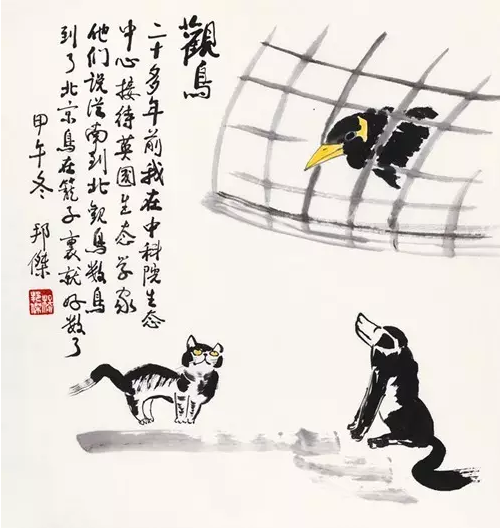 觀鳥
二十多年前我在中科院生态
中心接待英國生态学家
他们説從南到北觀鳥数鳥
到了北京鳥在籠子裏就好数了
甲午冬 邦傑